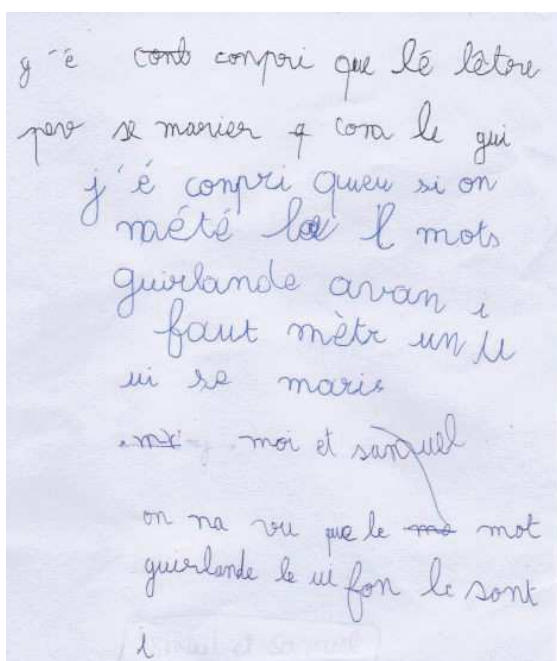 g'é conpri que lé lètre
peve se marier
j'é conpri queu si on
mété l mots
guirlande avan i
faut mètr un u
ui se marie
moi et samuel
on na vu que le mot
guirlande le ui fon le sont
i